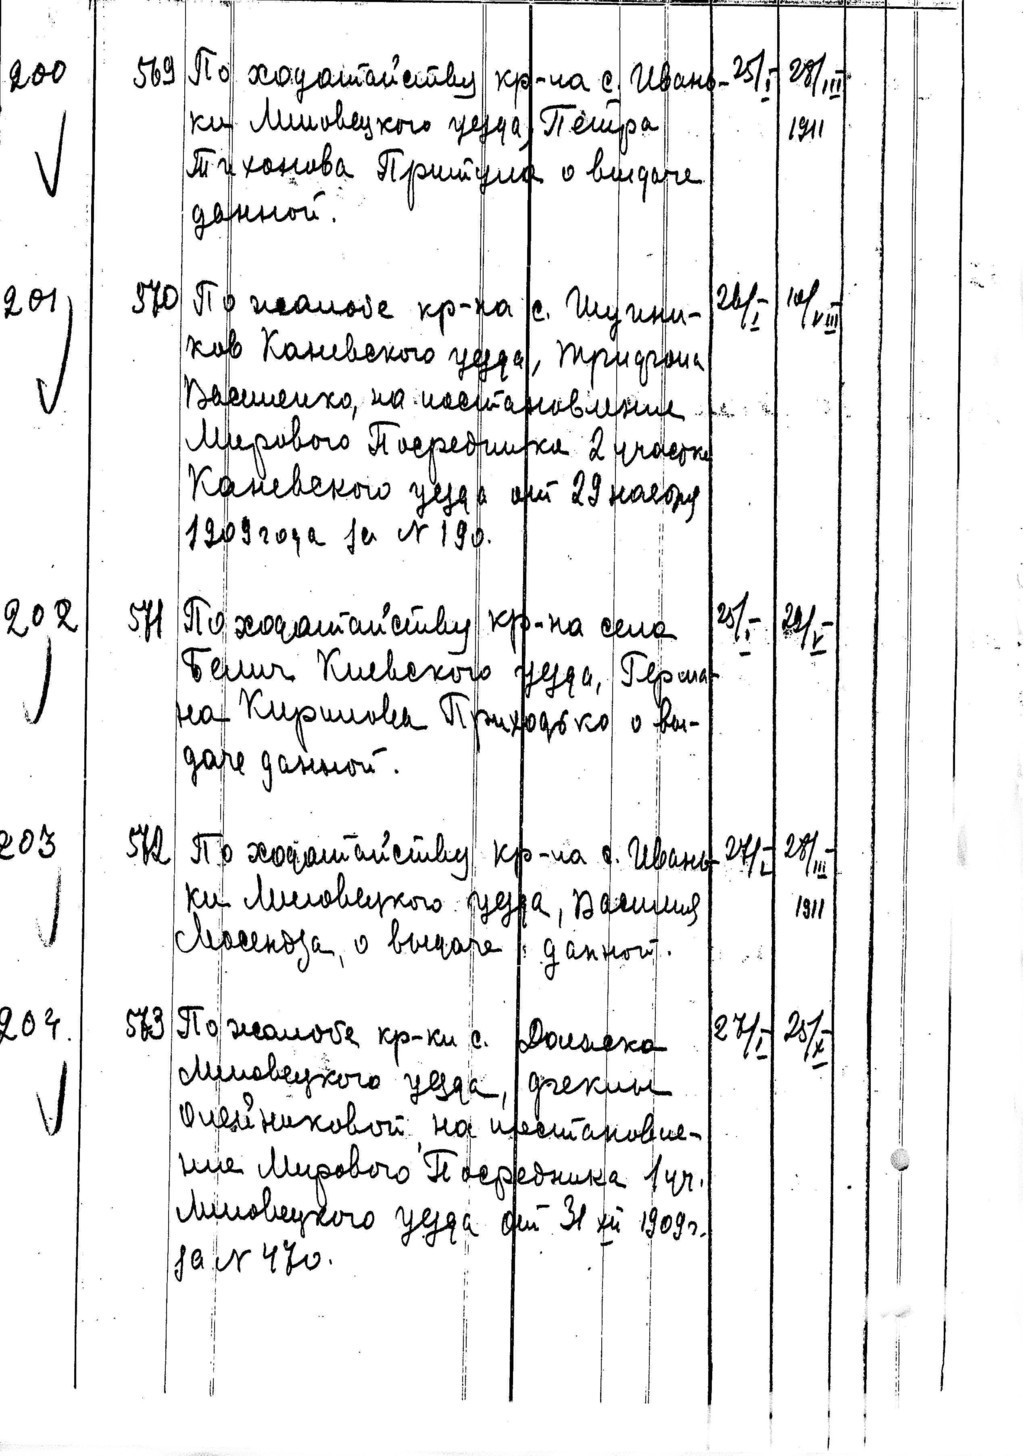 200 569 По ходатайству кр-на с. Ивань- 25/I 28/III
ки Липовецкого уезда, Петра 1911
Тихонова Притула о выдаче
данной.
201 570 По жалобе кр-на с. Шучни- 26/I 10/VIII
ков Каневского уезда, Трифона
Василенко, на постановление
Мирового Посредника 2 участка
Каневского уезда от 29 ноября
1909 года за N 190.
202 571 По ходатайству кр-на села 25/I 29/V
Белич Киевского уезда, Герма-
на Кирилова Приходько о вы-
даче данной.
203 572 По ходатайству кр-на с. Ивань- 27/I 28/III
ки Липовецкого уезда, Василия 1911
Мосендза, о выдаче данной.
204. 573 По жалобе кр-ки с. 27/I 25/X
Липовецкого уезда, феклы
Олейниковой, на постановле-
ние Мирового Посредника 1 уч.
Липовецкого уезда от 31 XII 1909 г.
за N 470.